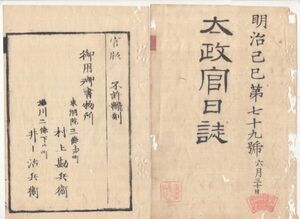 明治己巳第七十九號
六月二十日
太政官日誌
官版
不許飜刻
御用御書物所
東洞院三條上ル町
村上勘兵衞
堀川二條下ル町
井上治兵衞